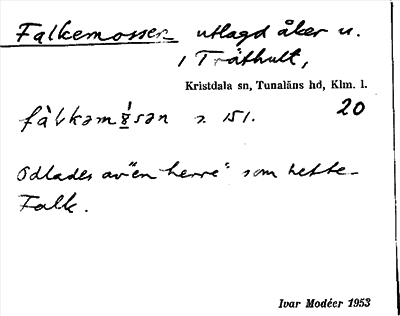 Falkemossen utlagd åker u.
1 Tråthult,
Kristdala sn, Tunaläns hd, Klm. l.
20
s. 151.
Odlades av "en herre" som hette
Falk.
Ivar Modéer 1953